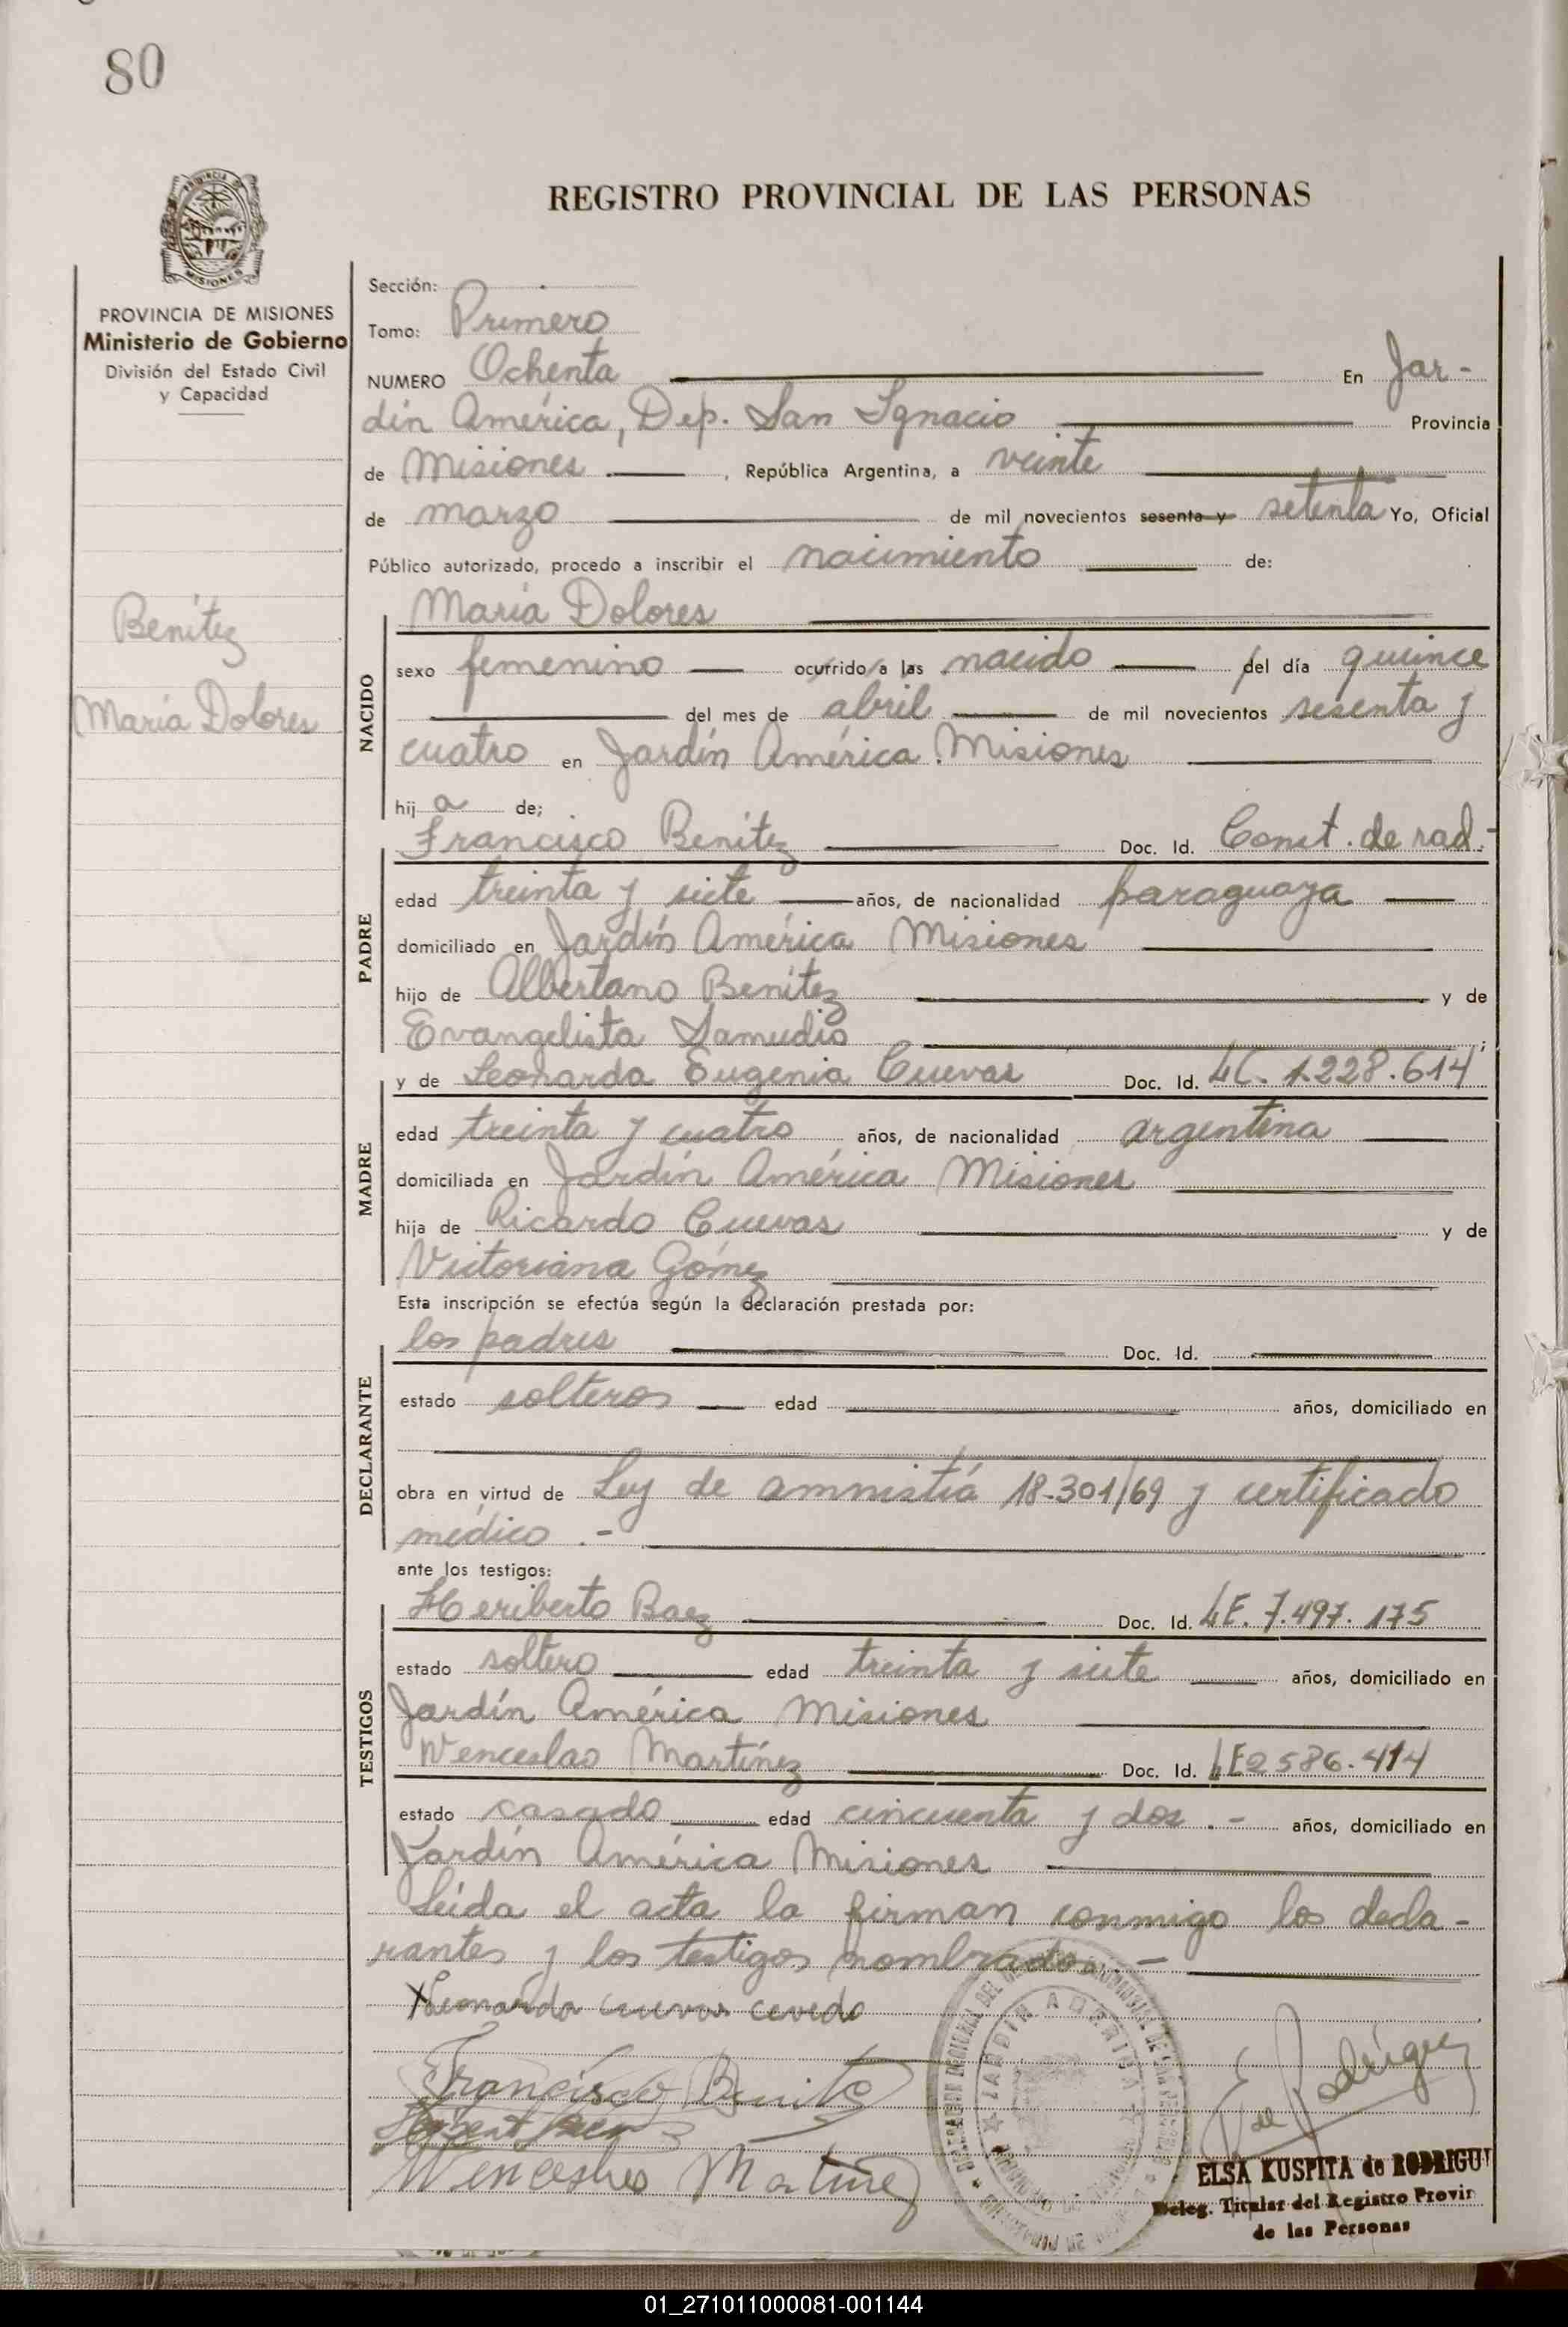 80
REGISTRO PROVINCIAL DE LAS PERSONAS
PROVINCIA DE MISIONES
Ministerio de Gobierno
División del Estado Civil
y Capacidad
Benítez
María Dolores
Sección:
Tomo: Primero
NUMERO Ochenta En Jar-
dín América, Dep. San Ignacio Provincia
de Misiones, República Argentina, a veinte
de marzo de mil novecientos sesenta y setenta Yo, Oficial
Público autorizado, procedo a inscribir el nacimiento de:
María Dolores
NACIDO
sexo femenino ocurrido a las nacido del día quince
del mes de abril de mil novecientos sesenta y
cuatro en Jardín América. Misiones
hij a de;
Francisco Benítez Doc. Id. Const. de rad.-
PADRE
edad treinta y siete años, de nacionalidad paraguaya
domiciliado en Jardín América Misiones
hijo de Albertano Benítez y de
Evangelista Samudio;
y de Leonarda Eugenia Cuevas Doc. Id. LC. 1.228.614
MADRE
edad treinta y cuatro años, de nacionalidad argentina
domiciliada en Jardín América Misiones
hija de Ricardo Cuevas y de
Victoriana Gómez
Esta inscripción se efectúa según la declaración prestada por:
los padres Doc. Id.
DECLARANTE
estado solteros edad años, domiciliado en
obra en virtud de Ley de amnistía 18-301/69 y certificado
médico.-
ante los testigos:
Heriberto Baez Doc. Id. LE. 7.497.175
TESTIGOS
estado soltero edad treinta y siete años, domiciliado en
Jardín América Misiones
Wenceslao Martínez Doc. Id. LE 2586.414
estado casado edad cincuenta y dos.- años, domiciliado en
Jardín América Misiones
Leída el acta la firman conmigo los decla-
rantes y los testigos nombrados.-
Leonarda cuevas
Francisco Benite
Wenceslao Martinez
E de Rodríguez
JARDIN AMERICA
ELSA KUSPITA de RODRIGU
Deleg. Titular del Registro Provin
de las Personas
01_271011000081-001144